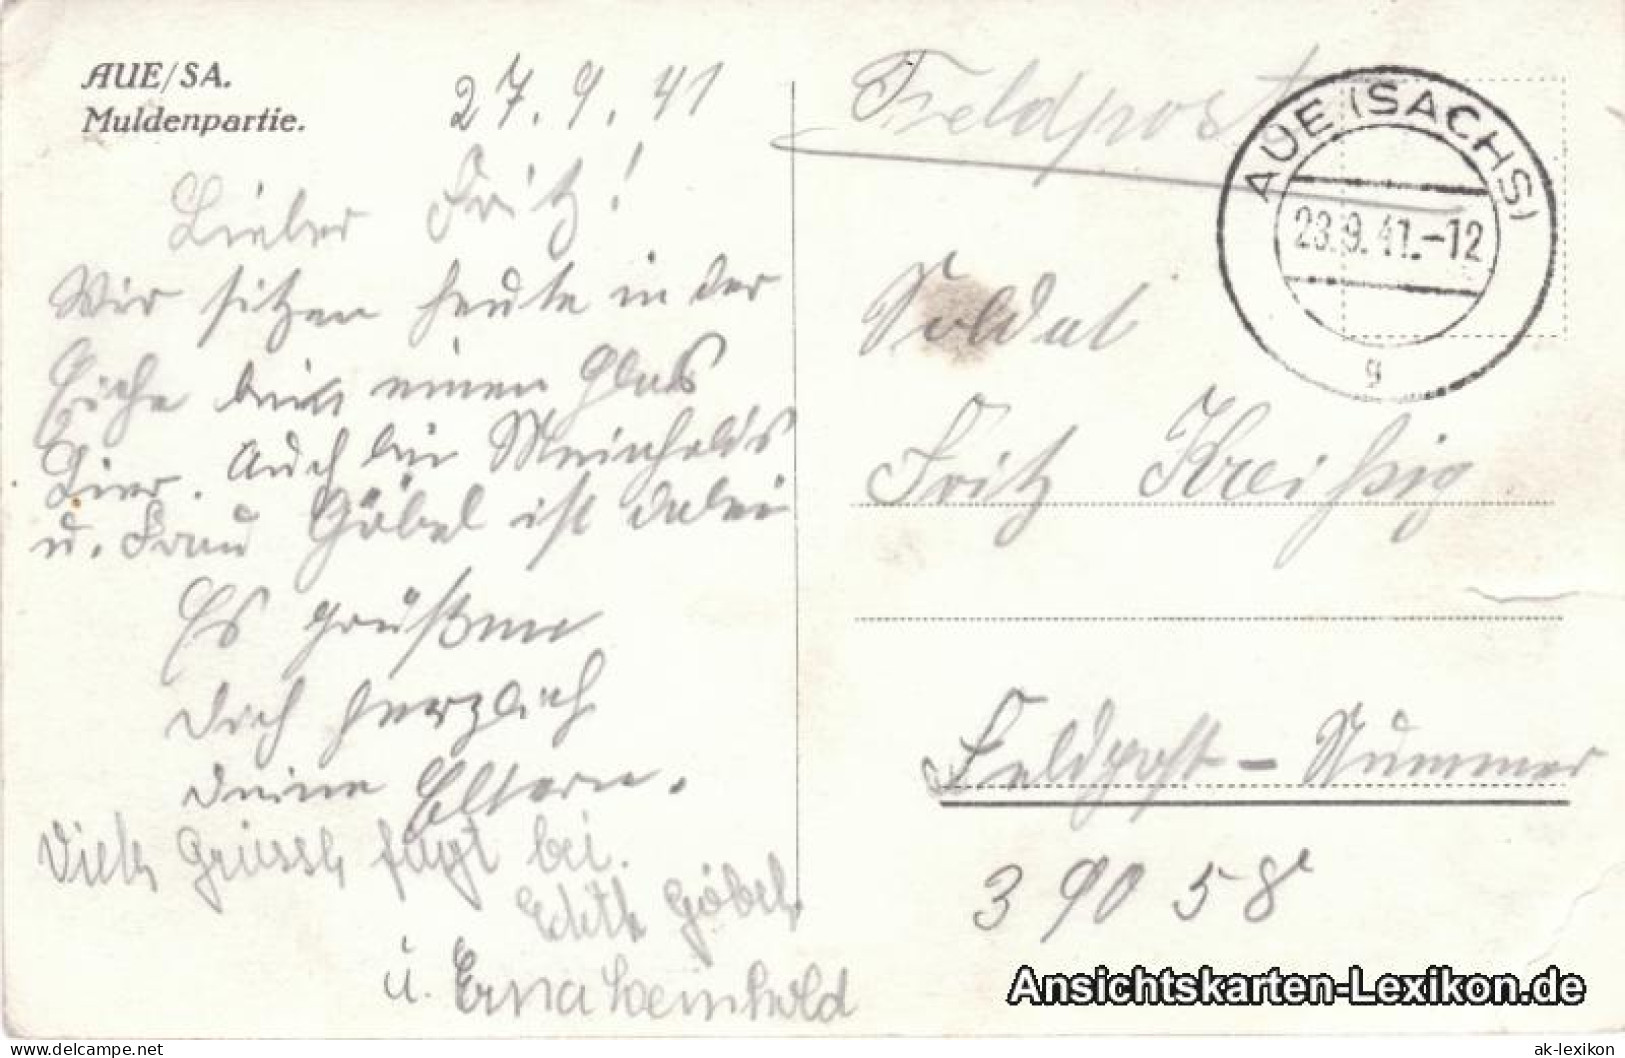 AUE/SA.
Muldenpartie.
27.9.41
Lieber Fritz!
Wir sitzen heute in der
Eiche beim einen Glas
Bier. Auch bei Meinhold's
u. Frau Göbel ist dabei
Es grüßen
Dich herzlich
deine Eltern.
Viele Grüsse fügt bei.
Edith Göbel
u. Erna Meinhold
Feldpost
AUE (SACHS)
23.9.41.-12
g
Soldat
Fritz Kreißig
Feldpost-Nummer
39058
Ansichtskarten-Lexikon.de
delcampe.net
ak-lexikon